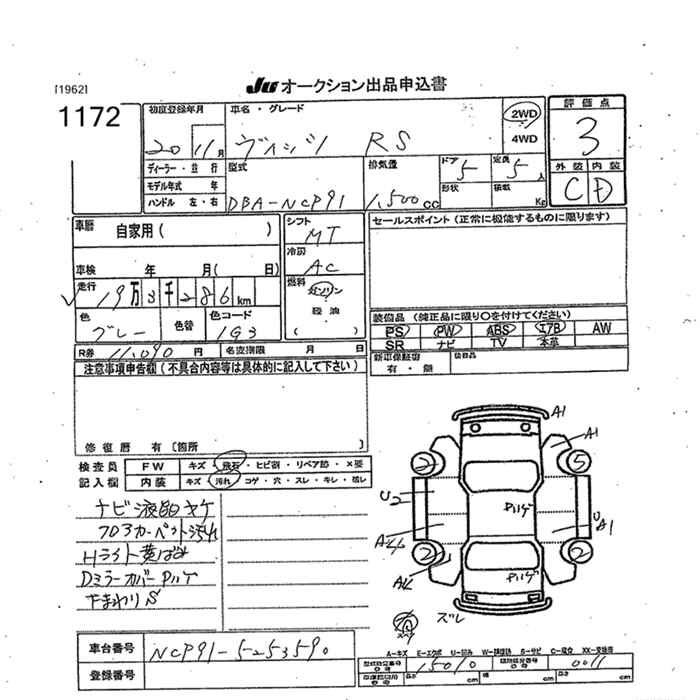 [1962]
JU オークション出品申込書
1172
初度登録年月
20年11月
車名・グレード
ヴィッツ RS
2WD
4WD
評価点
3
ディーラー・並行
モデル年式 年
ハンドル 左・右
型式
DBA-NCP91
排気量
1,500cc
ドア
5
形状
定員
5人
積載
Kg
外装 内装
C D
車歴
自家用( )
シフト
MT
セールスポイント (正常に機能するものに限ります)
冷房
AC
車検 年 月( 日)
走行
19万3千286km
燃料
ガソリン
軽油
( )
色
グレー
色替
色コード
1G3
装備品 (純正品に限り○を付けてください)
PS PW ABS エアB AW
SR ナビ TV 本革
R券 11,090円
名変期限 月 日
新車保証書
有・無
後日品
注意事項申告欄(不具合内容等は具体的に記入して下さい)
修復歴 有〔箇所 〕
検査員
記入欄
FW キズ・飛石・ヒビ割・リペア跡・×要
内装 キズ・汚れ・コゲ・穴・スレ・キレ・破レ
ナビ液晶ヤケ
フロアカーペット汚れ
Hライト黄ばみ
DミラーカバーPハゲ
下まわりS
A1
A1
2
5
U2
Pハゲ
U
A1
2
2
Pハゲ
ズレ
スペア
車台番号
NCP91-5253590
登録番号
A－キズ E－エクボ U－凹み W－補修跡 S－サビ C－腐食 XX－交換済
型式指定番号
15010
類別区分番号
0011
長さ cm
巾 cm
高さ cm